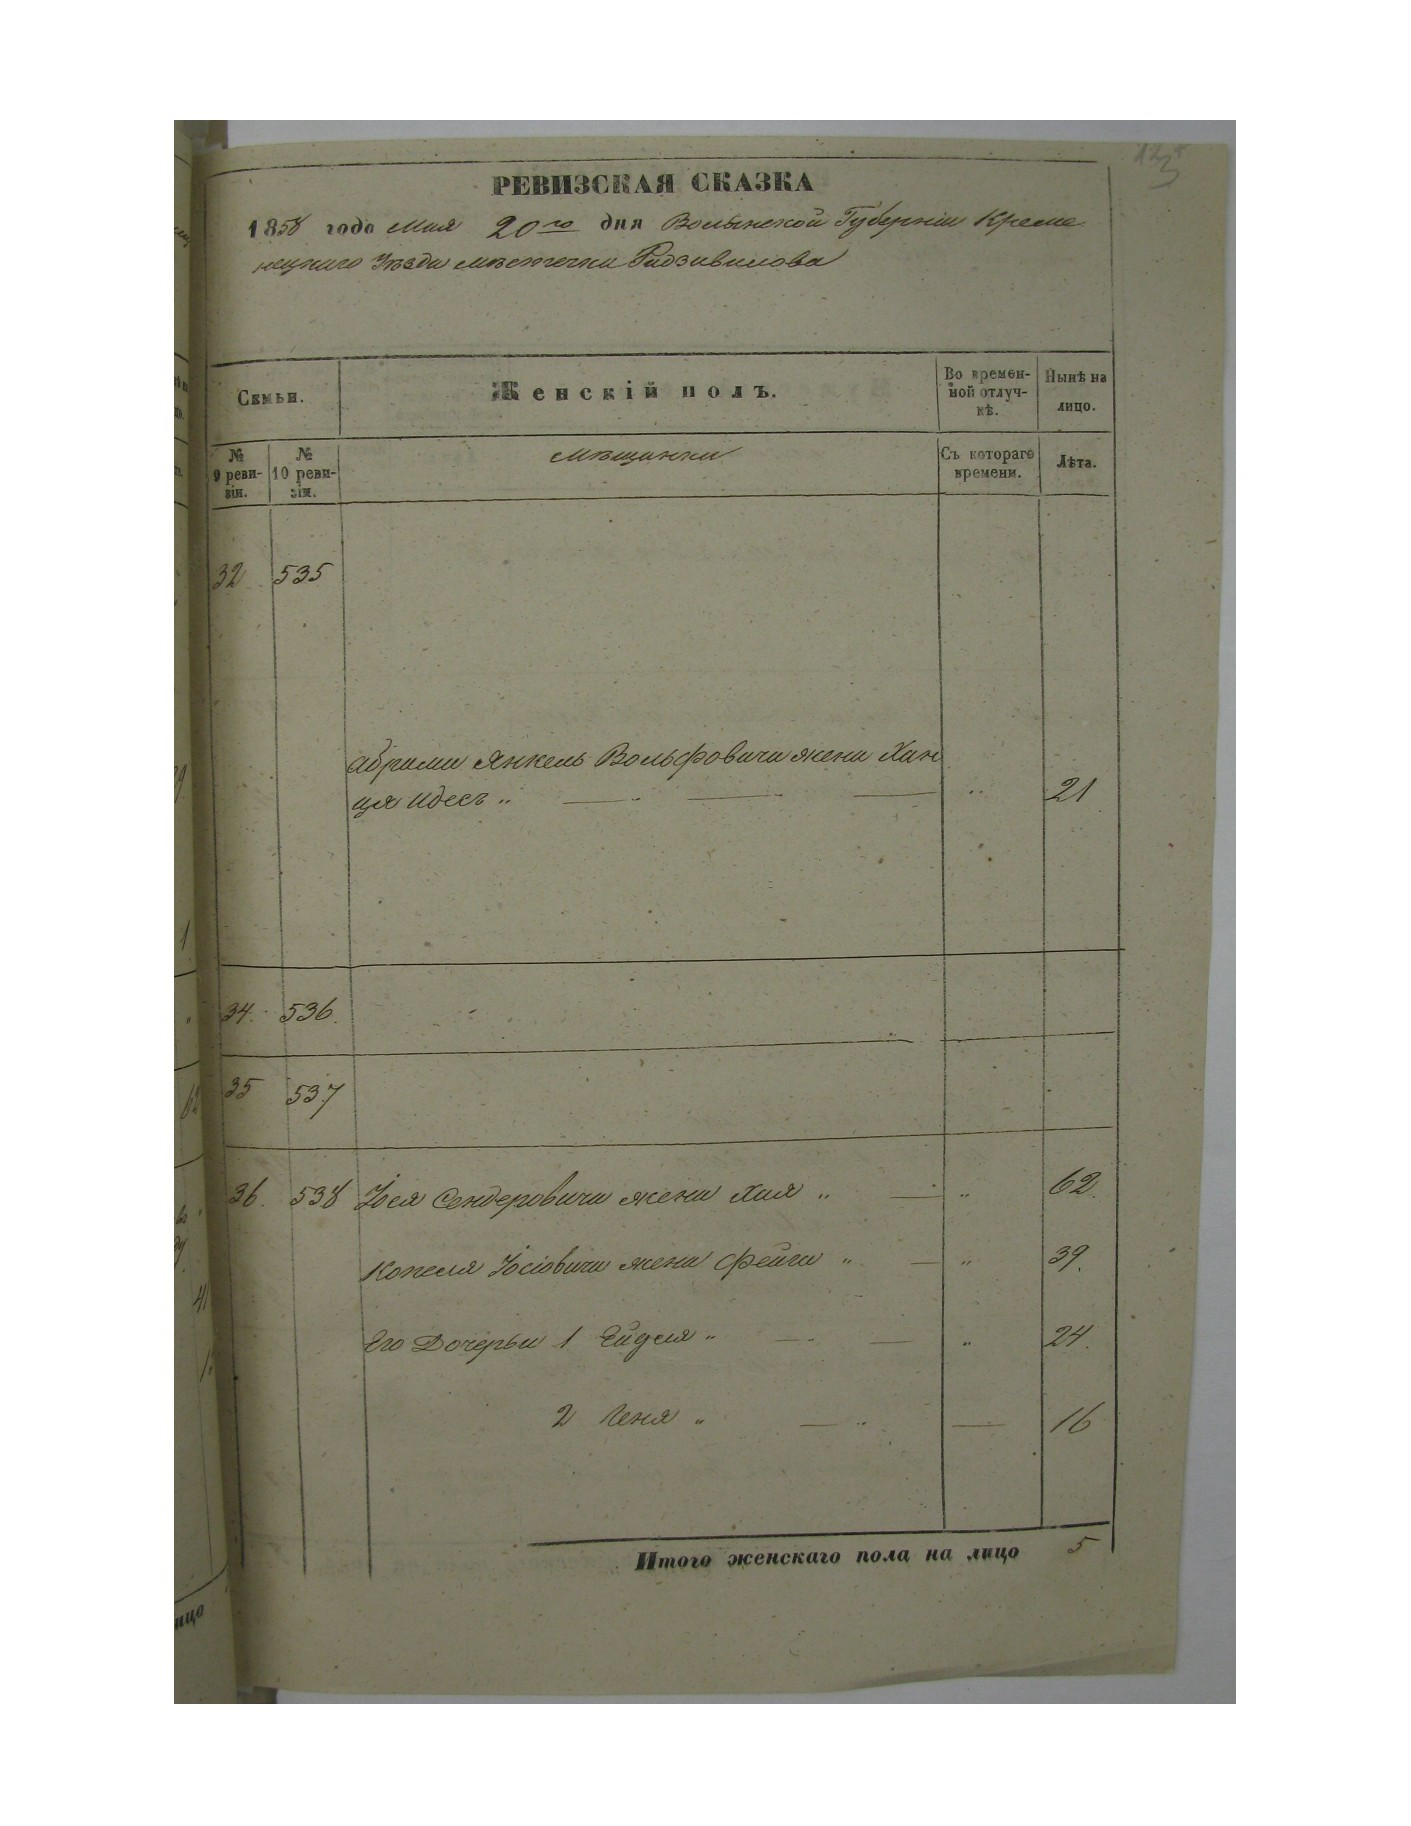 РЕВИЗСКАЯ СКАЗКА
1858 года Мая 20го дня Волынской Губерніи Креме
нецкаго Уезда местечка Радзивилова
Семьи.
Женскій полъ.
Во времен-
ной отлуч-
кѣ.
Нынѣ на
лицо.
№
9 реви-
зіи.
№
10 реви-
зіи.
Мѣщанки
Съ котораго
времени.
Лѣта.
32 535
Абрама Янкель Вольфовича жена Хан
ця Идесъ „ 21
34. 536.
35 537
36. 538 Іося Сендеровича жена Хая „ „ 62.
Копеля Іосіовича жена Фейга „ „ 39.
Его Дочерьи 1 Ейдля „ „ 24.
2 Геня „ 16
Итого женскаго пола на лицо 5